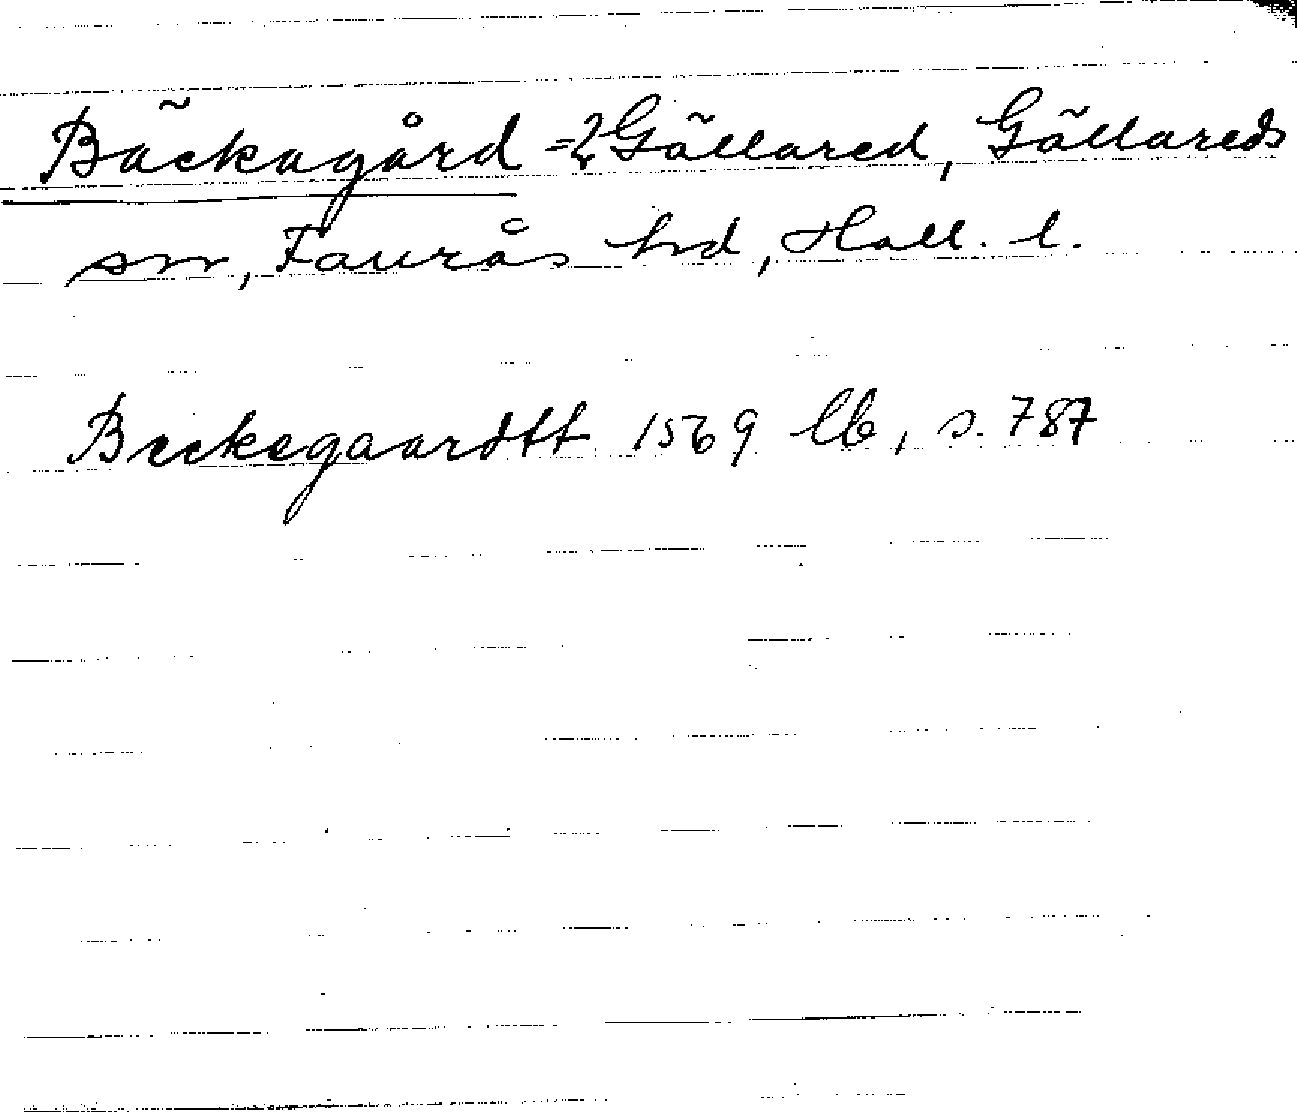 Bäckagård =2 Gällared, Gällareds
sn, Faurås hd, Hall. l.
Beckegaardtt 1569 lb, s. 787